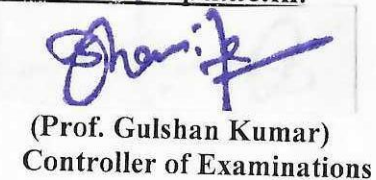 (Prof. Gulshan Kumar)
Controller of Examinations